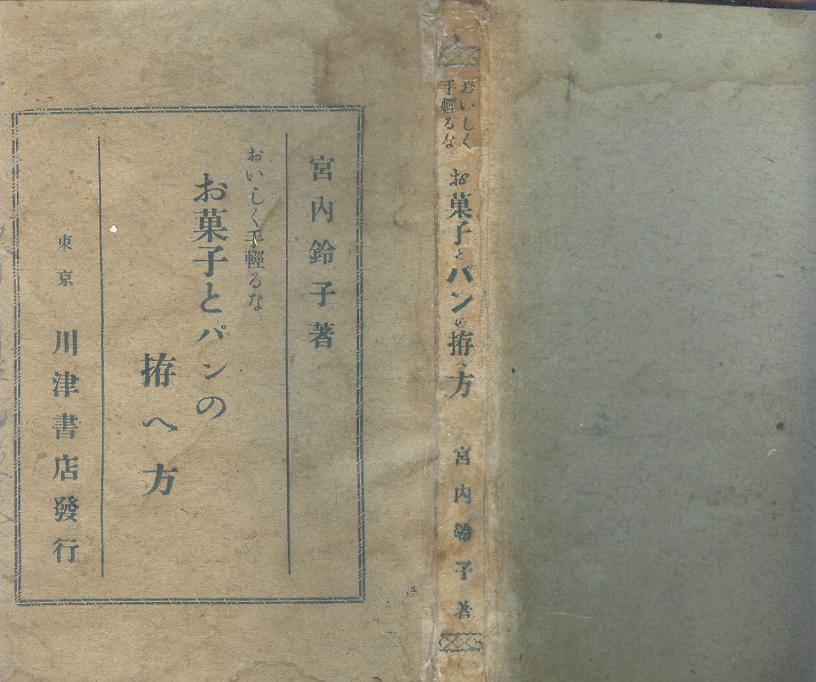 宮内鈴子著
おいしく手輕るな
お菓子とパンの
拵へ方
東京 川津書店發行
おいしく
手輕るな
お菓子とパンの拵へ方 宮内鈴子著